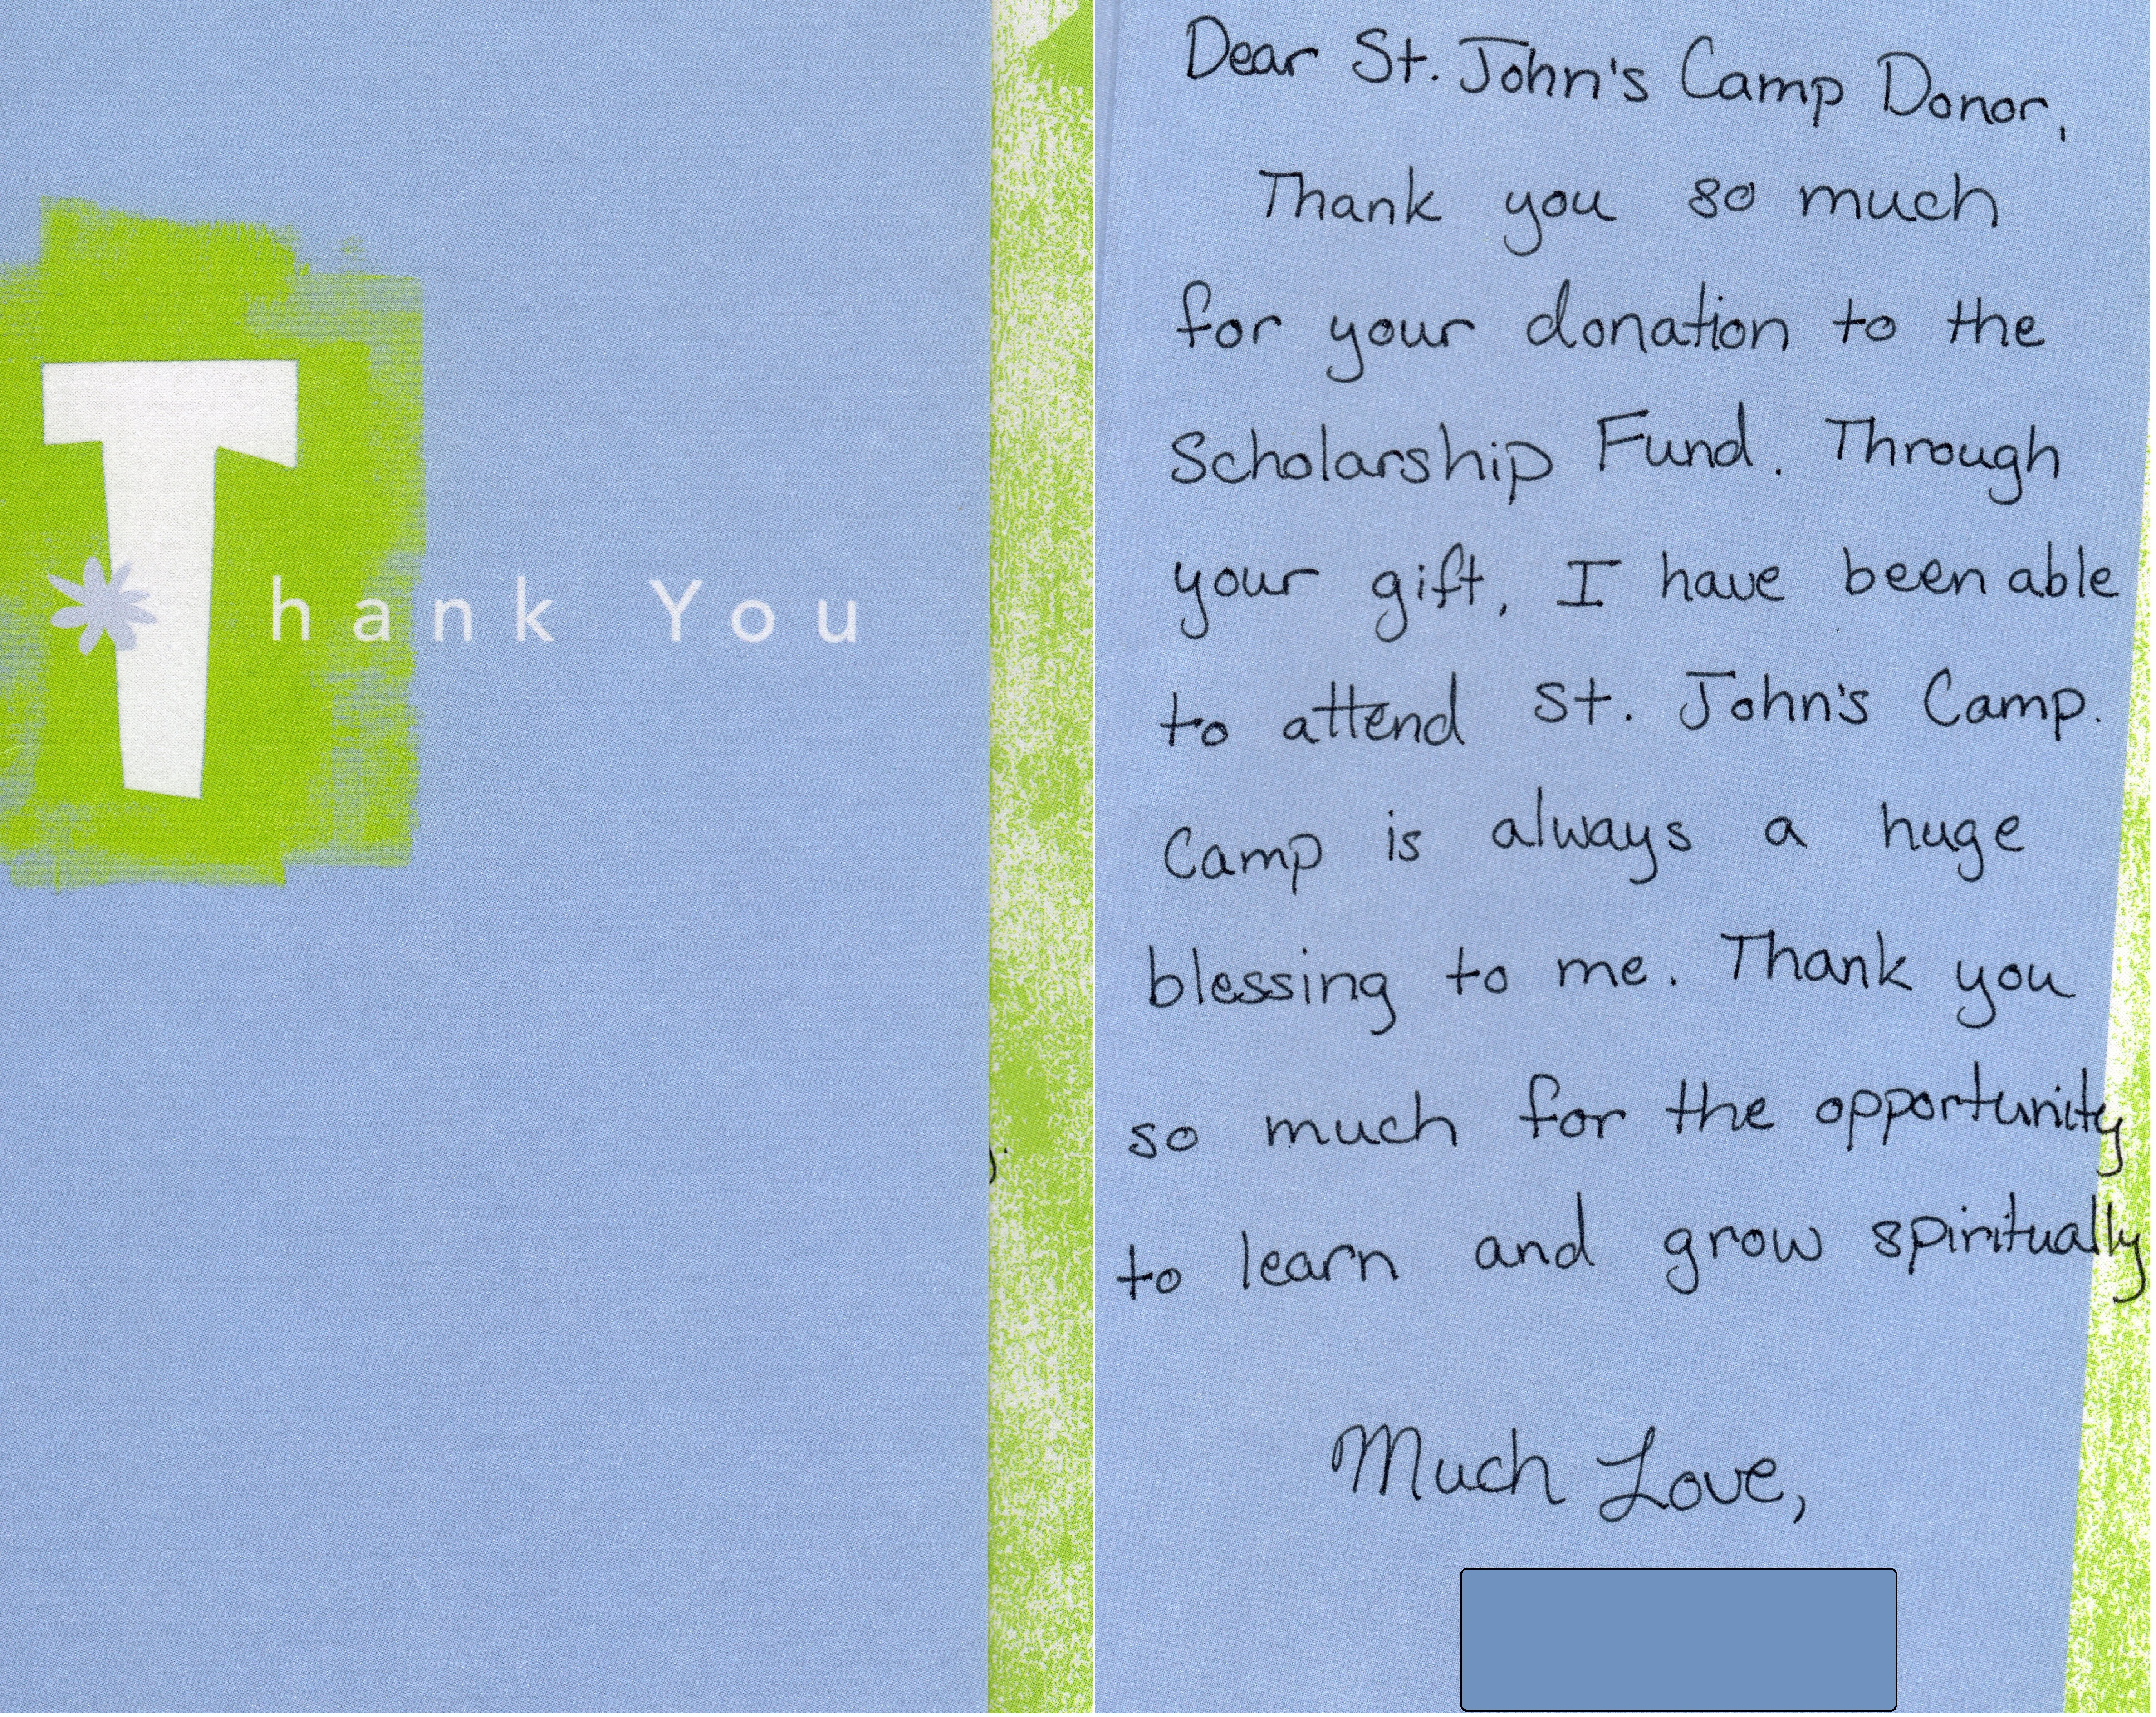 Thank You
Dear St. John's Camp Donor,
Thank you so much
for your donation to the
Scholarship Fund. Through
your gift, I have been able
to attend St. John's Camp.
Camp is always a huge
blessing to me. Thank you
so much for the opportunity
to learn and grow spiritually
Much Love,